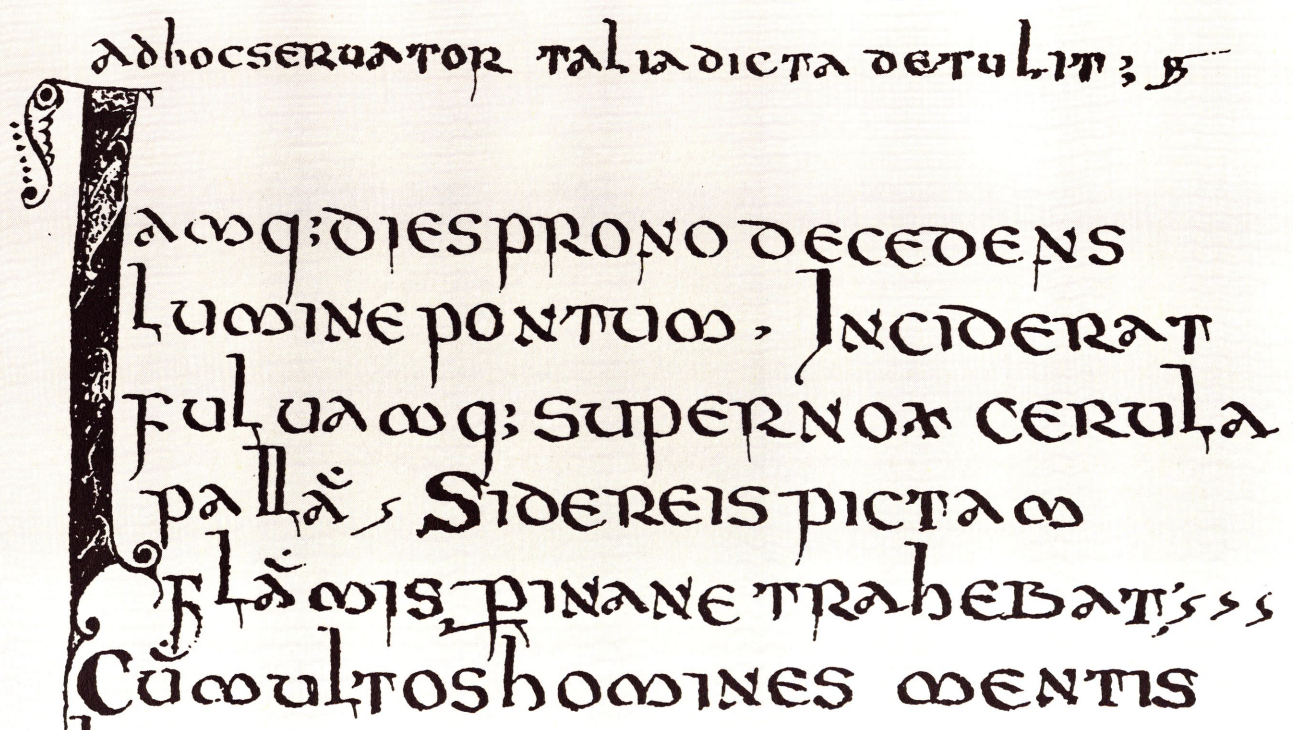 adhocseruator taliadicta detulit;
Iamq;diesprono decedens
Luminepontum, Inciderat
Fuluamq;supernox cerula
palla, Sidereis pictam
Flāmis pinane trahebat;,,,
Cūmultoshomines mentis